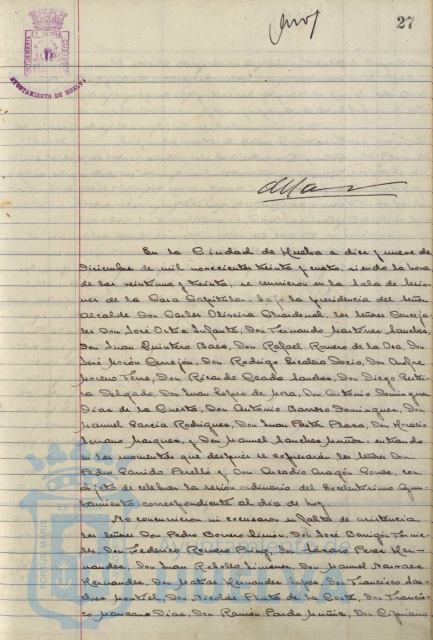 27
AYUNTAMIENTO DE HUELVA
En la Ciudad de Huelva a diez y nueve de
Diciembre de mil novecientos treinta y cuatro, siendo la hora
de las veintiuna y treinta, se reunieron en la Sala de Sesio-
nes de la Casa Capitular, bajo la presidencia del Señor
Alcalde Don Carlos Oliveira Chardenal, los señores Conceja-
les Don José Ortiz Infante, Don Fernando Martinez Sanchez,
Don Juan Quintero Baez, Don Rafael Romero de la Osa, Don
José Morón Cerrejón, Don Rodrigo Don Andres
Moreno Don Ricardo Sanchez, Don Diego
Delgado, Don Juan Lopez de Mora, Don Antonio Dominguez
Diaz de la Cuesta, Don Antonio Barroso Dominguez, Don
Manuel Garcia Rodriguez, Don Juan Don Horacio
Serrano Marquez, y Don Manuel Sanchez Muñoz, entrando
en los momentos que después se expresarán los señores Don
Pedro Garrido Perelló y Don Arcadio Aragón Gomez, con
objeto de celebrar la sesión ordinaria del Excelentísimo Ayun-
tamiento correspondiente al día de hoy.
No concurrieron ni excusaron su falta de asistencia
los señores Don Pedro Borrero Limón, Don José Barrigón
Don Federico Romero Don Lázaro Perez Her-
nandez, Don Juan Rebollo Jimenez, Don Manuel Narvaez
Hernandez, Don Matias Hernandez Lopez, Don Francisco San-
chez Don Nicolas de la Corte, Don Francis-
co Manzano Diaz, Don Ramón Pardo Muñiz, Don Cipriano